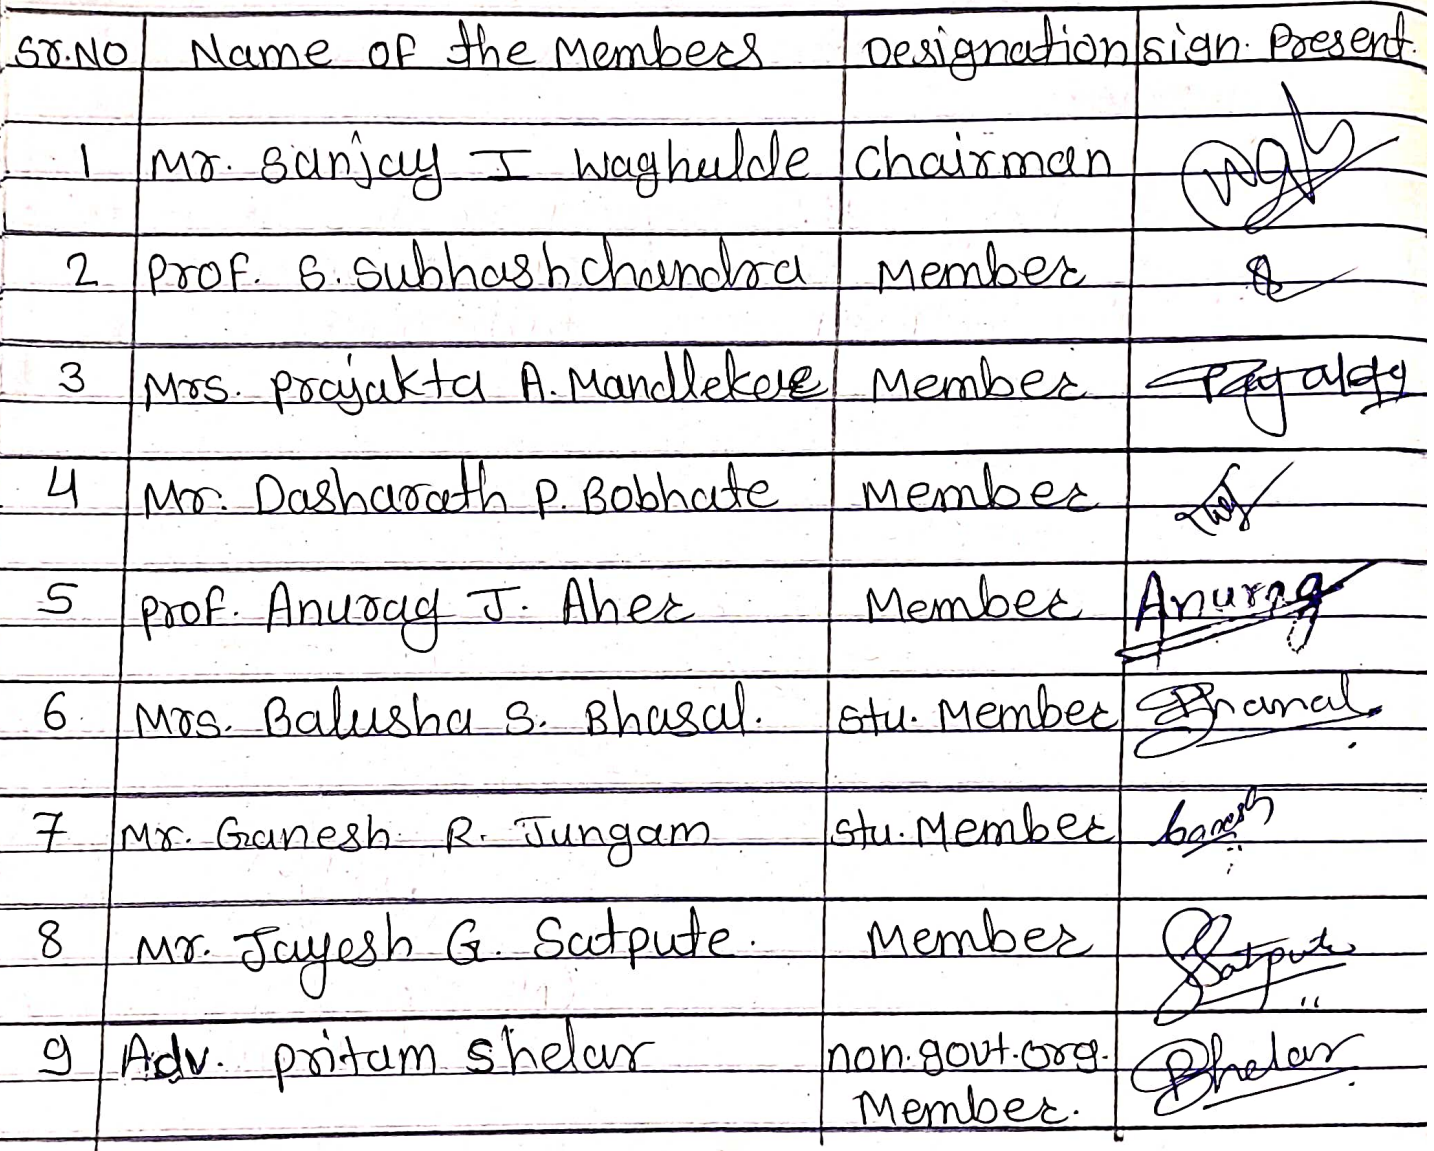 Sr.No Name of the Members Designation sign. Present.
1 Mr. Sanjay I Waghulde Chairman
2 Prof. S. Subhashchandra Member
3 Mrs. Prajakta A. Mandlekar Member
4 Mr. Dasharath P. Bobhate Member
5 Prof. Anurag J. Aher Member Anurag
6. Mrs. Balusha S. Bhasal. stu. Member
7 Mr. Ganesh R. Jungam stu. Member Ganesh
8 Mr. Jayesh G. Satpute. Member Satpute
9 Adv. pritam shelar non. govt. org. Shelar
Member.